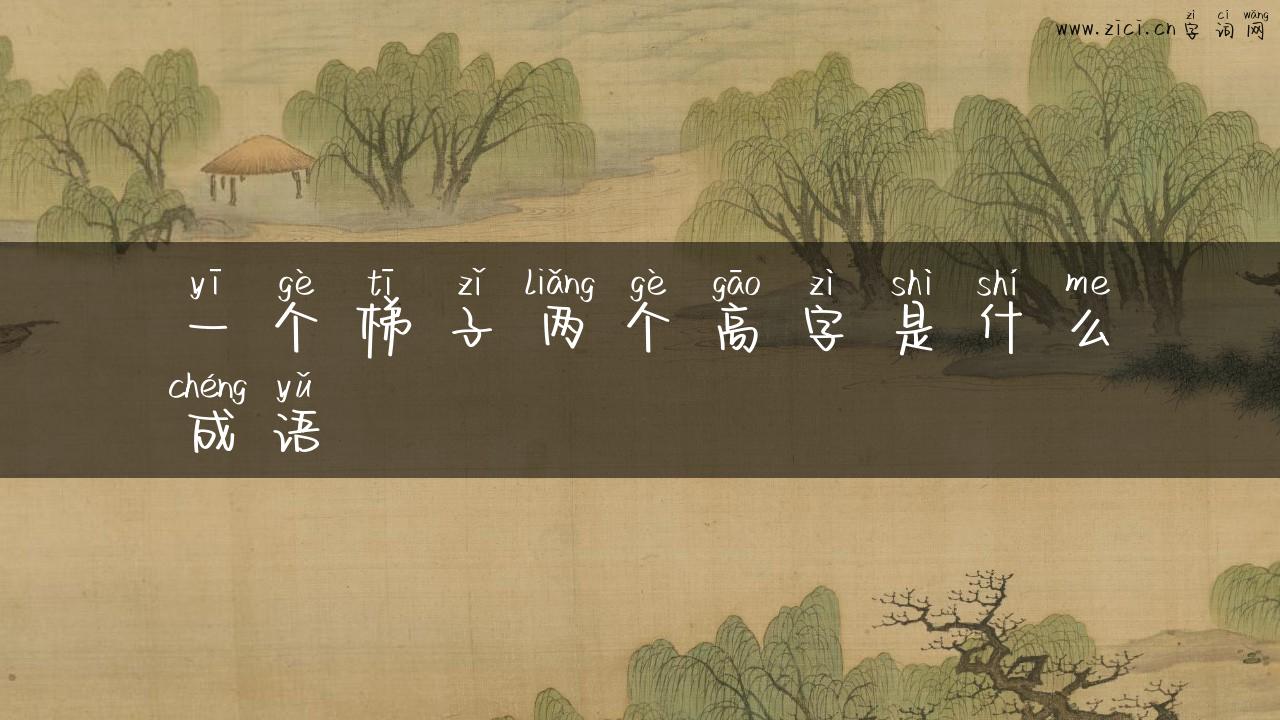 zì cí wǎng
www.zici.cn字词网
yī gè tī zǐ liǎng gè gāo zì shì shí me
一个梯子两个高字是什么
chéng yǔ
成语